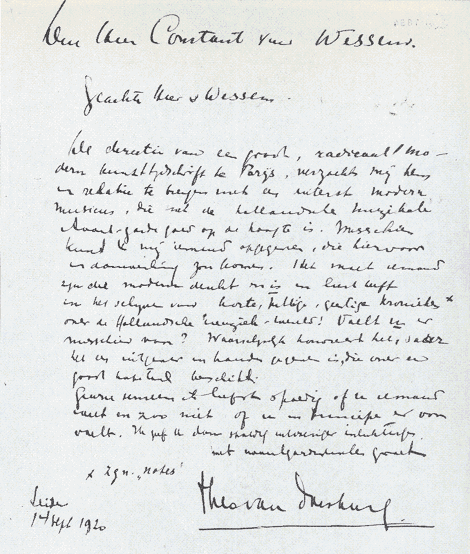 Den Heer Constant van Wessem.
Geachte Heer v Wessem.
De directie van een groot, radicaal! mo-
dern kunsttijdschrift te Parijs, verzocht mij hen
in relatie te brengen met een uiterst modern
musicus, die met de hollandsche muzikale
Avant-garde goed op de hoogte is. Misschien
kunt u mij iemand opgeven, die hiervoor
in aanmerking zou komen. Het moet iemand
zijn die modern denkt en is en lust heeft
in het schrijven van korte, pittige, geestige kronieken x
over de Hollandsche muziek-wereld! Voelt u er
misschien voor? Waarschijnlijk honoreert het, zoodra
het een uitgever in handen gegeven is, die over een
groot kapitaal beschikt.
Gaarne vernam ik liefst spoedig of u iemand
weet en zoo niet of u in principe er voor
voelt. Ik geef u dan spoedig uitvoeriger inlichtingen.
met groeten
x zgn. „notes"
Theo van Doesburg.
Leiden
14 Sept 1920